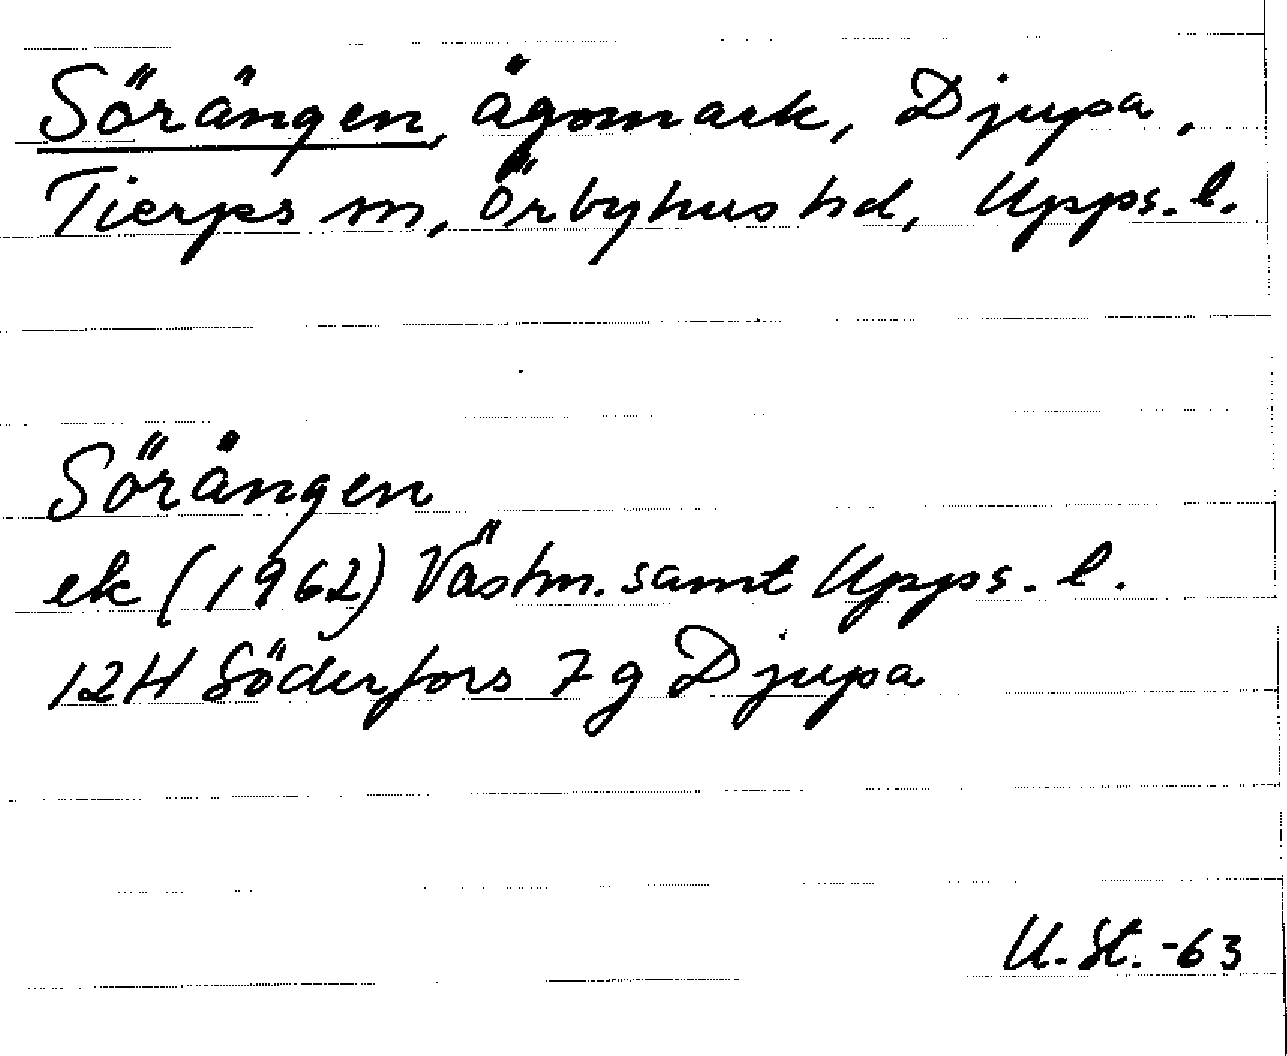 Sörängen, ägomark, Djupa,
Tierps sn, Örbyhus hd, Upps. l.
Sörängen
ek (1962) Västm. samt Upps. l.
12H Söderfors 7 g Djupa
U. St. -63